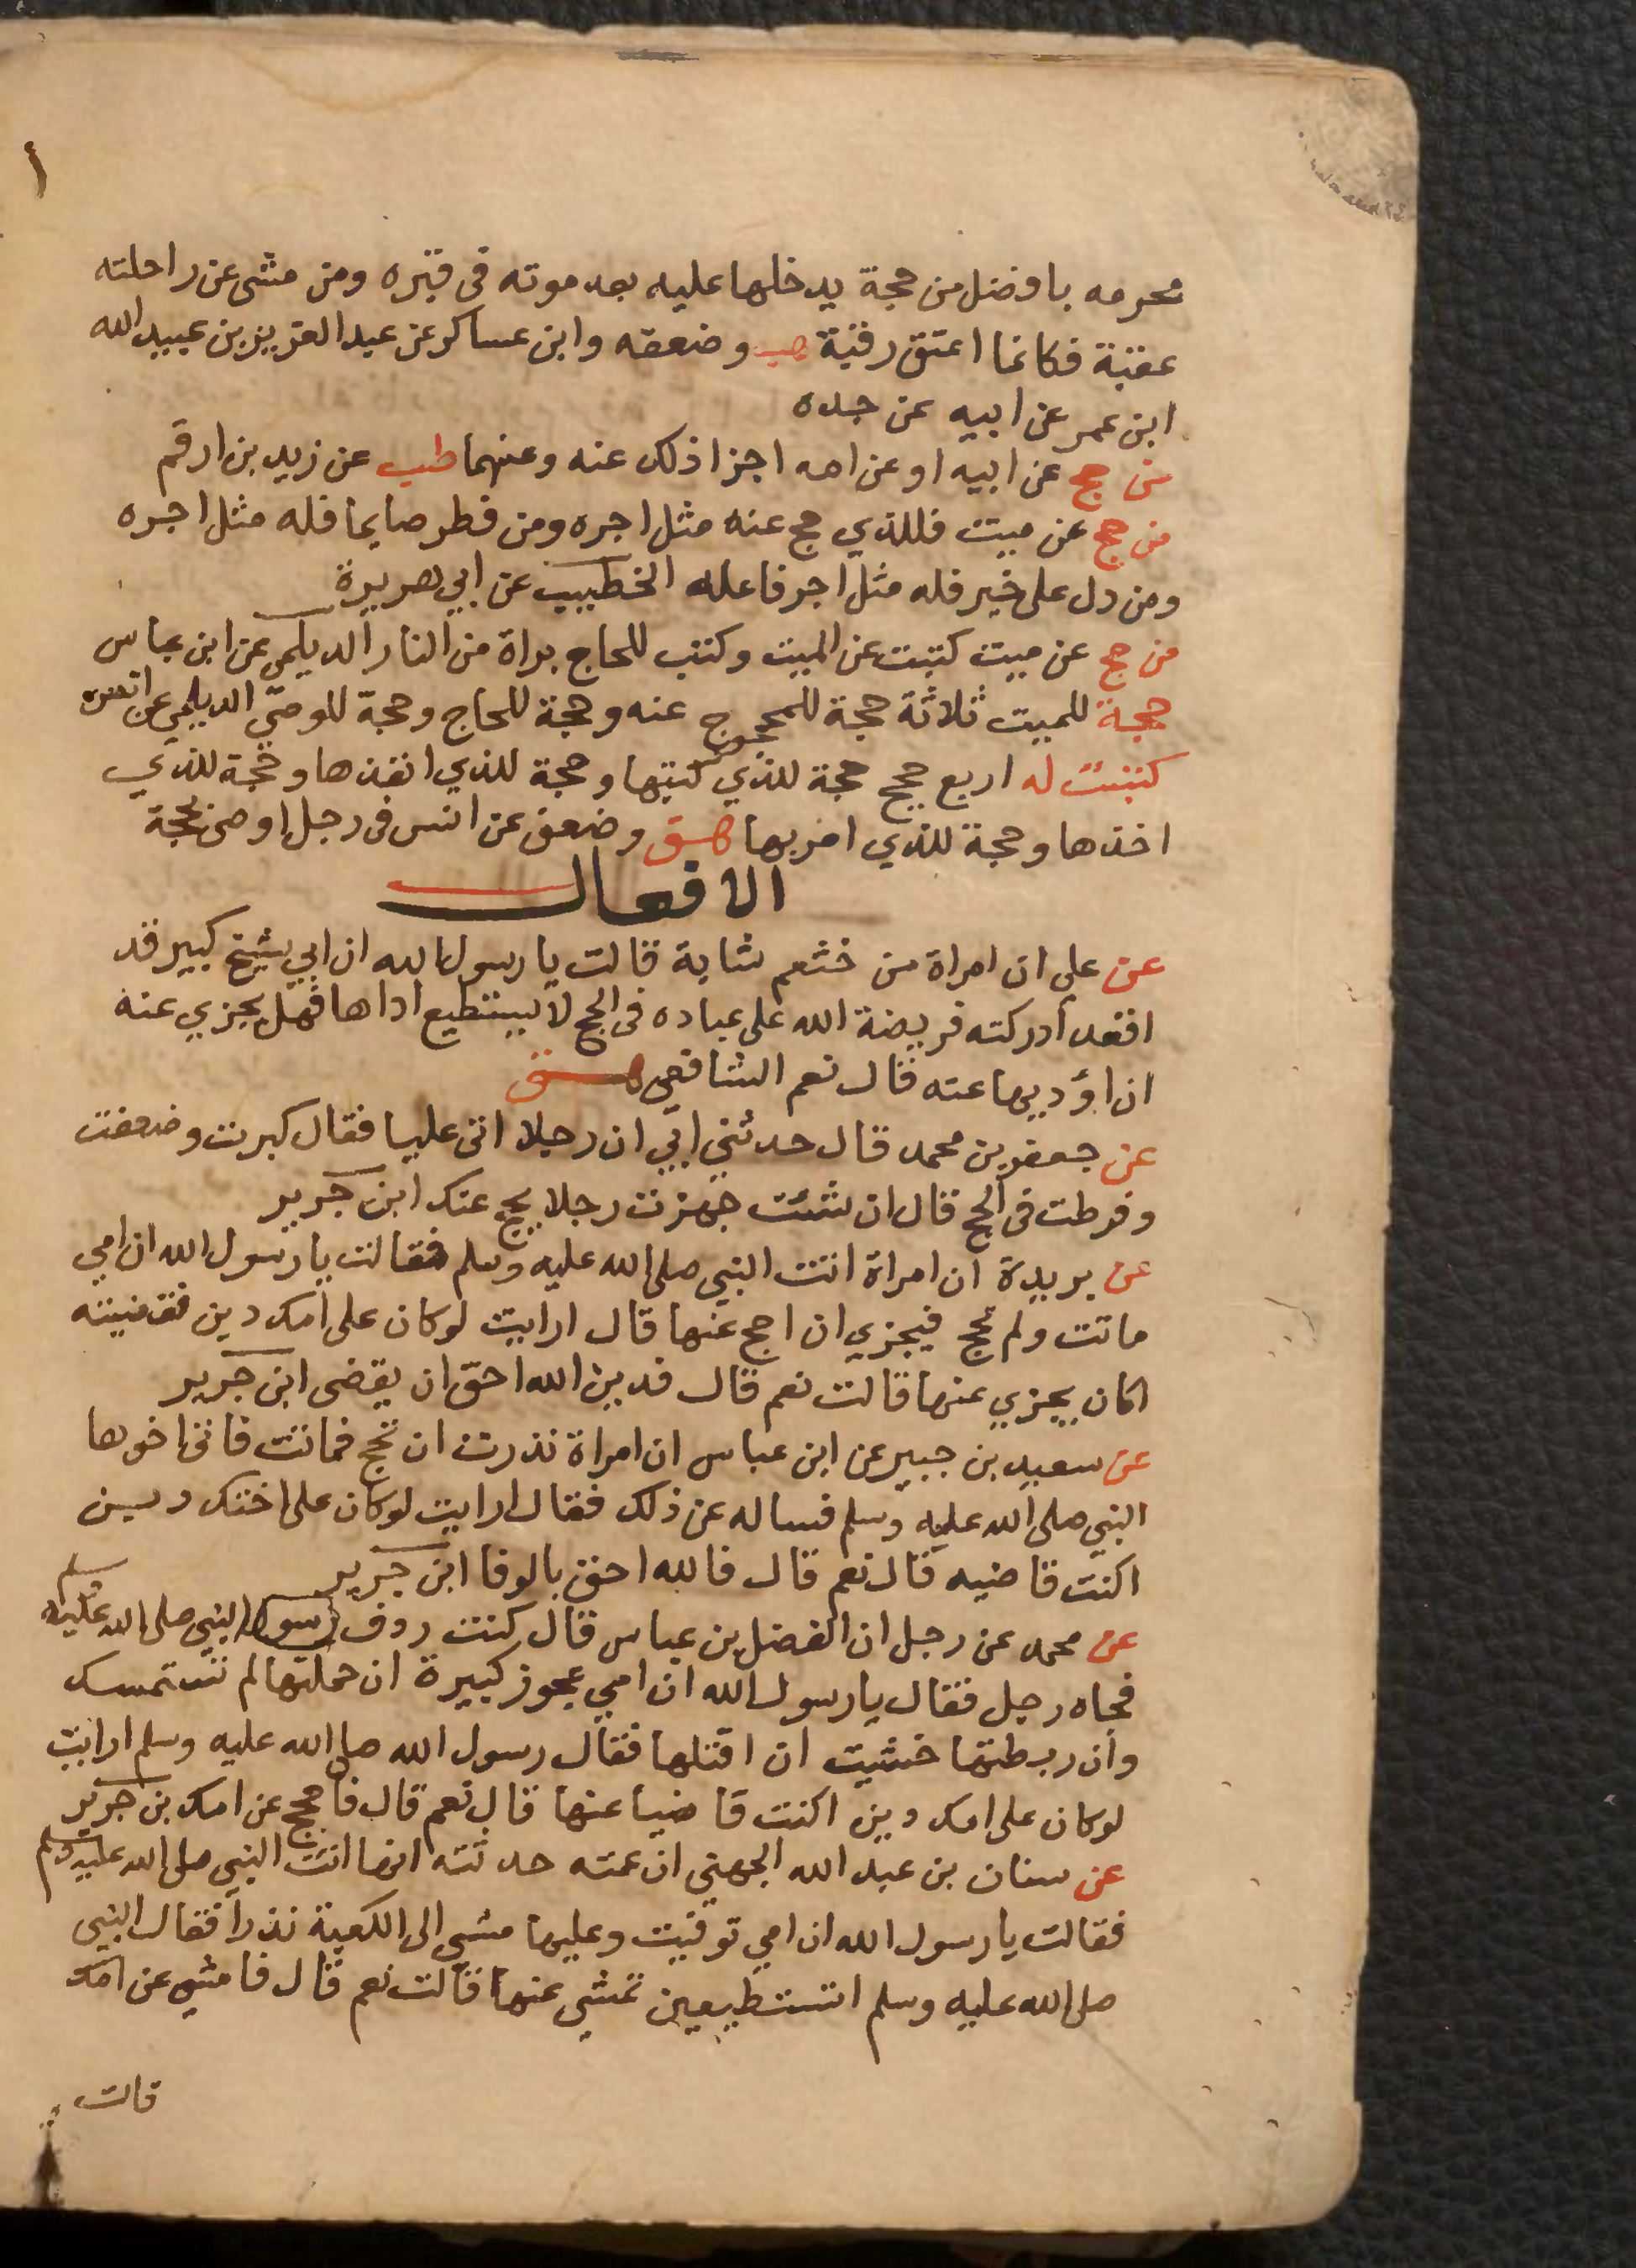 محرمه بافضل من حجة يدخلها عليه بعد موته فى قبره ومن مشى عن راحلته
عقبة فكانما اعتق رقبة هب وضعفه وابن عساكر عن عبد العزيز بن عبيد الله
ابن عمر عن ابيه عن جده
من حج عن ابيه او عن امه اجزا ذلك عنه وعنهما طب عن زيد بن ارقم
من حج عن ميت فللذي حج عنه مثل اجره ومن فطر صايما فله مثل اجره
ومن دل على خير فله مثل اجر فاعله الخطيب عن ابي هريرة
من حج عن ميت كتبت عن الميت وكتب للحاج براة من النار الديلمي عن ابن عباس
حجة للميت ثلاثة حجة للمحجوج عنه وحجة للحاج وحجة للوصي الديلمي عن انس
كتبت له اربع حجج حجة للذي كتبها وحجة للذي انفذها وحجة للذي
اخذها وحجة للذي امر بها هق وضعف عن انس فى رجل اوصى بحجة
الافعال
عن علي ان امراة من خثعم شابة قالت يا رسول الله ان ابي شيخ كبير قد
افقد أدركته فريضة الله على عباده فى الحج لا يستطيع اداها فهل يجزي عنه
ان اؤديها عنه قال نعم الشافعي هق
عن جعفر بن محمد قال حدثني ابي ان رجلا اتى عليا فقال كبرت وضعفت
وفرطت فى الحج قال ان شئت جهزت رجلا يحج عنك ابن جرير
عن بريدة ان امراة اتت النبي صلى الله عليه وسلم فقالت يا رسول الله ان امي
ماتت ولم تحج فيجزي ان احج عنها قال ارايت لو كان على امك دين فقضيته
اكان يجزي عنها قالت نعم قال فدين الله احق ان يقضى ابن جرير
عن سعيد بن جبير عن ابن عباس ان امراة نذرت ان تحج فماتت فاتى اخوها
النبي صلى الله عليه وسلم فساله عن ذلك فقال ارايت لو كان على اختك دين
اكنت قاضيه قال نعم قال فالله احق بالوفا ابن جرير
عن محمد عن رجل ان الفضل بن عباس قال كنت ردف رسول النبي صلى الله عليه وسلم
فجاه رجل فقال يا رسول الله ان امي عجوز كبيرة ان حملتها لم تستمسك
وان ربطتها خشيت ان اقتلها فقال رسول الله صلى الله عليه وسلم ارايت
لو كان على امك دين اكنت قاضيا عنها قال نعم قال فاحجج عن امك بن جرير
عن سنان بن عبد الله الجهني ان عمته حدثته انها اتت النبي صلى الله عليه وسلم
فقالت يا رسول الله ان امي توفيت وعليها مشي الى الكعبة نذرا فقال النبي
صلى الله عليه وسلم اتستطيعين تمشي عنها قالت نعم قال فامشي عن امك
قالت